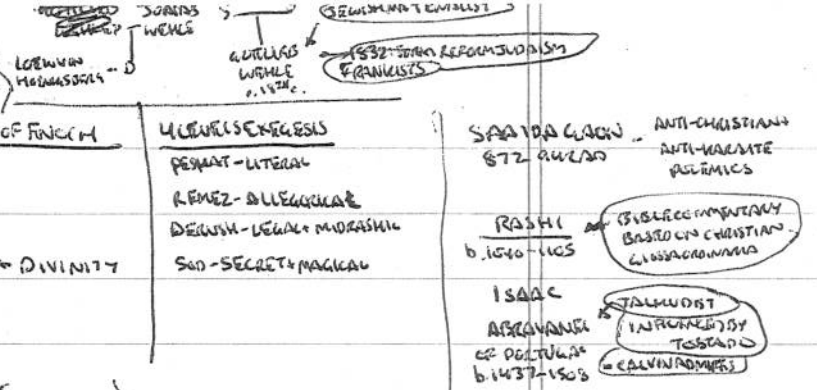 JONAS
WEHLE
GOTTLIEB
WEHLE
1832
REFORM JUDAISM
FRANKISTS
4 LEVELS EXEGESIS
PESHAT - LITERAL
REMEZ - ALLEGORICAL
DERUSH - LEGAL + MIDRASHIC
SOD - SECRET + MAGICAL
DIVINITY
SAADIA GAON
872
ANTI-CHRISTIAN +
ANTI-KARAITE
POLEMICS
RASHI
b. 1040-1105
BIBLE COMMENTARY
BASED ON CHRISTIAN
GLOSSA ORDINARIA
ISAAC
ABRAVANEL
OF PORTUGAL
b. 1437-1508
TALMUDIST
INFLUENCED BY
TOSTADO
CALVIN ADMIRES